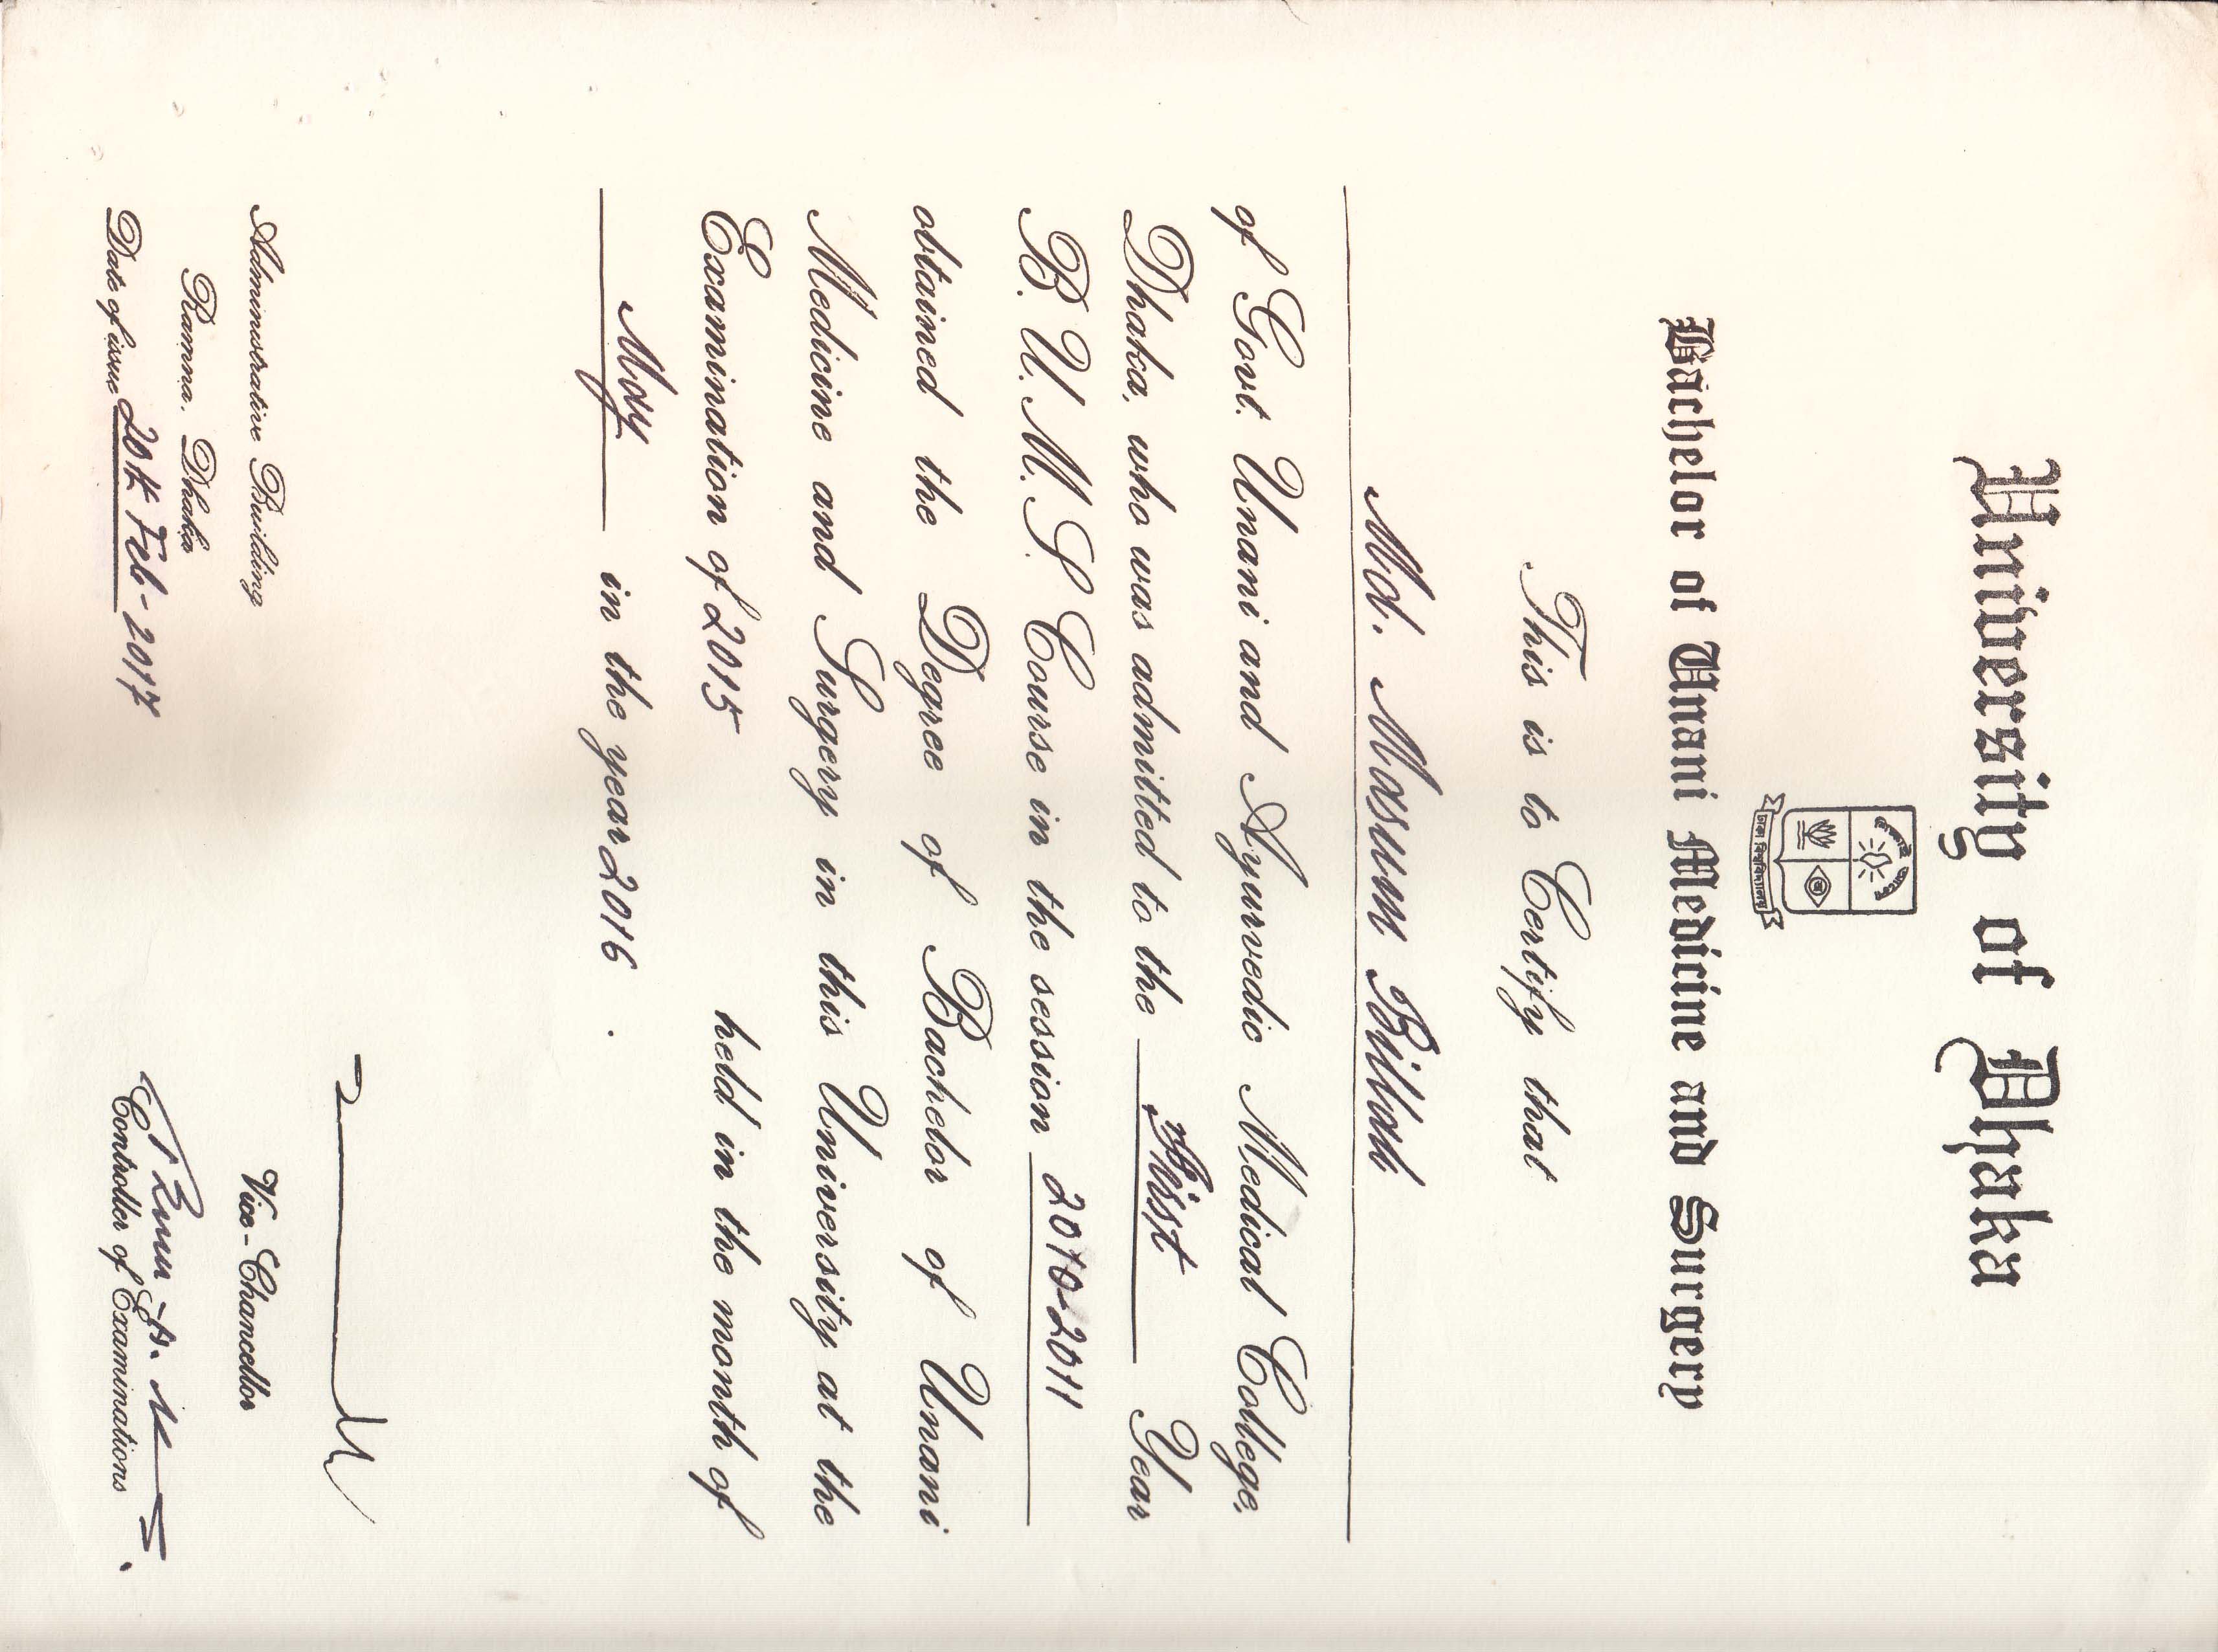 University of Dhaka
Bachelor of Unani Medicine and Surgery
This is to Certify that
Md. Masum Billah
of Govt. Unani and Ayurvedic Medical College,
Dhaka, who was admitted to the First Year
B. U. M. S. Course in the session 2010-2011
obtained the Degree of Bachelor of Unani
Medicine and Surgery in this University at the
Examination of 2015 held in the month of
May in the year 2016.
Administrative Building
Ramna, Dhaka
Date of issue 20th Feb-2017
Vice-Chancellor
Controller of Examinations